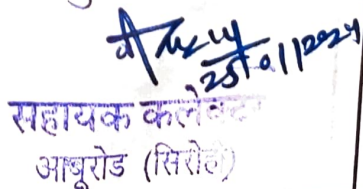 25/01/2024
सहायक कलेक्टर
आबूरोड (सिरोही)